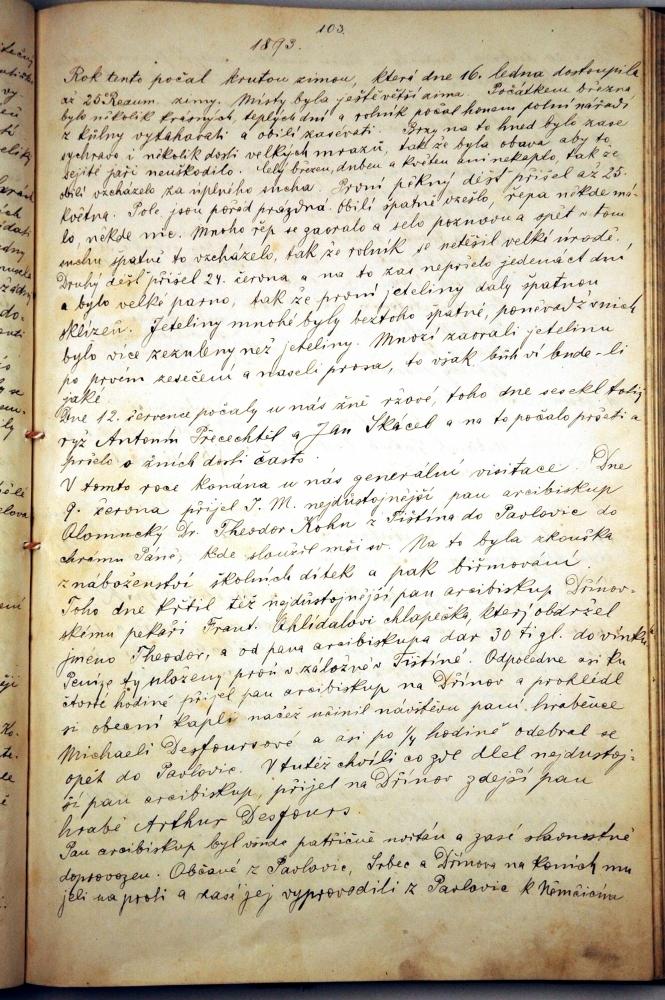 103.
1893.
Rok tento počal krutou zimou, která dne 16. ledna dostoupila
až 25° Reaum. zimy. Místy byla ještě větší zima. Počátkem března
bylo několik krásných, teplých dní a rolník počal honem polní nářadí
z kůlny vytahovati a obilí zasévati. Brzy na to hned bylo zase
sychravo i několik dosti velkých mrazů, tak že byla obava aby to
seјité jaři neuškodilo. Celý březen, duben a květen ani nekaplo, tak že
obilí vzcházelo za úplného sucha. První pěkný déšť přišel až 25.
května. Pole jsou pořád prázdná. Obilí špatně vzešlo, řepa někde má-
lo, někde nic. Mnoho řep se zaoralo a selo poznovu a opět v tom
suchu špatně to vzcházelo, tak že rolník se netěšil velké úrodě.
Druhý déšť přišel 24. června a na to zas nepršelo jedenáct dní
a bylo velké parno, tak že první jeteliny daly špatnou
sklizeň. Jeteliny mnohé byly beztoho špatné, poněvadž v nich
bylo více zezuleny než jeteliny. Mnozí zaorali jetelinu
po prvém zesečení a naseli prosa, to však bůh ví bude-li
jaké
Dne 12. července počaly u nás žně ržové, toho dne sesekl totiž
rýž Antonín Přecechtěl a Jan Skácel a na to počalo pršeti a
pršelo o žních dosti často.
V tomto roce konána u nás generální visitace. Dne
9. června přijel J. M. nejdůstojnější pan arcibiskup
Olomucký Dr. Theodor Kohn z Tištína do Pavlovic do
chrámu Páně, kde sloužil mši sv. Na to byla zkouška
z náboženství školních dítek a pak biřmování
Toho dne křtil též nejdůstojnější pan arcibiskup Dřínov-
skému pekaři Frant. Ohlídalovi chlapečka, který obdržel
jméno Theodor, a od pana arcibiskupa dar 30 ti zl. do vínku.
Peníze ty uloženy proň v záložně v Tištíně. Odpoledne asi ku
čtvrté hodině přijel pan arcibiskup na Dřínov a prohlédl
si obecní kapli načež učinil návštěvu paní hraběnce
Michaeli Desfoursové a asi po 1/4 hodině odebral se
opět do Pavlovic. V tutéž chvíli co zde dlel nejdůstoj-
ší pan arcibiskup, přijel na Dřínov zdejší pan
hrabě Arthur Desfours.
Pan arcibiskup byl všude patřičně uvítán a zase slavnostně
doprovozen. Občané z Pavlovic, Srbec a Dřínova na koních mu
jeli naproti a zasi jej vyprovodili z Pavlovic k Němčicím